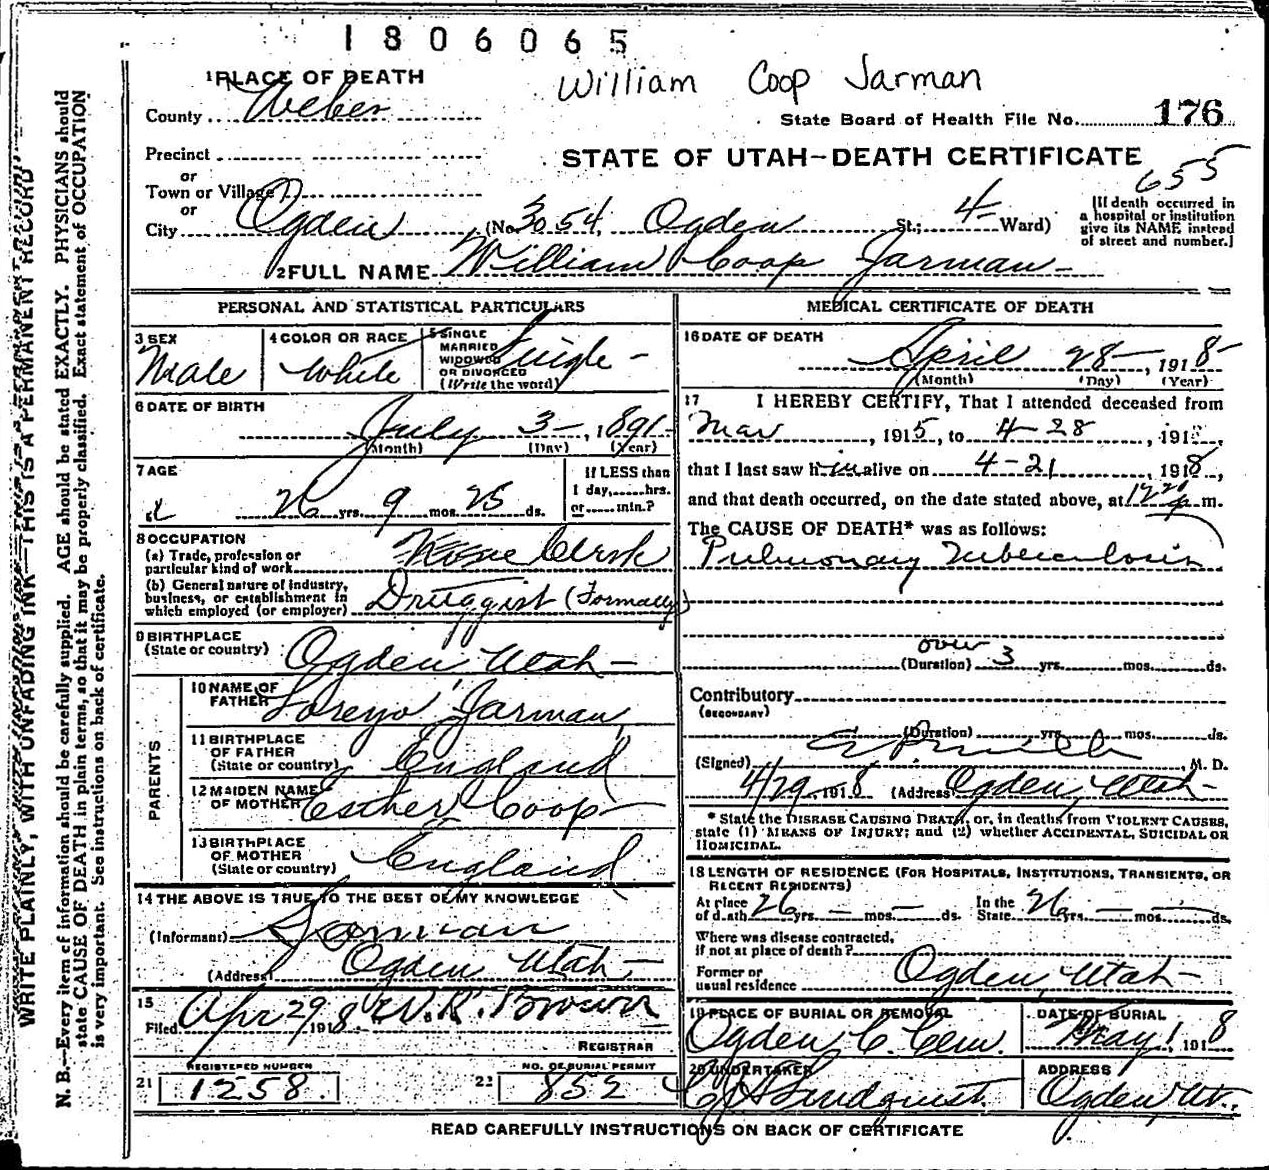 1806065
William Coop Jarman
1 PLACE OF DEATH
County Weber
State Board of Health File No. 176
Precinct
or
STATE OF UTAH—DEATH CERTIFICATE
655
Town or Village
or
City Ogden (No 3054, Ogden St.; 4 Ward)
[If death occurred in a hospital or institution give its NAME instead of street and number.]
2 FULL NAME William Coop Jarman
PERSONAL AND STATISTICAL PARTICULARS
3 SEX
Male
4 COLOR OR RACE
White
5 SINGLE
MARRIED
WIDOWED
OR DIVORCED
(Write the word)
Single
6 DATE OF BIRTH
July 3, 1891
(Month) (Day) (Year)
7 AGE
26 yrs. 9 mos. 25 ds.
If LESS than
1 day,......hrs.
or......min.?
8 OCCUPATION
(a) Trade, profession or
particular kind of work Clerk
(b) General nature of industry,
business, or establishment in
which employed (or employer) Druggist (Formally)
9 BIRTHPLACE
(State or country) Ogden Utah
PARENTS
10 NAME OF
FATHER Jarman
11 BIRTHPLACE
OF FATHER
(State or country) England
12 MAIDEN NAME
OF MOTHER Esther Coop
13 BIRTHPLACE
OF MOTHER
(State or country) England
14 THE ABOVE IS TRUE TO THE BEST OF MY KNOWLEDGE
(Informant) Jarman
(Address) Ogden Utah
15
Filed Apr 29 1918 W. R. Brown
REGISTRAR
REGISTERED NUMBER
21 1258
NO. OF BURIAL PERMIT
22 852
MEDICAL CERTIFICATE OF DEATH
16 DATE OF DEATH
April 28, 1918
(Month) (Day) (Year)
17 I HEREBY CERTIFY, That I attended deceased from
Mar, 1915, to 4-28, 191
that I last saw him alive on 4-21 1918,
and that death occurred, on the date stated above, at m.
The CAUSE OF DEATH* was as follows:
Pulmonary Tuberculosis
over
(Duration) 3 yrs. mos. ds.
Contributory
(SECONDARY)
(Duration) yrs. mos. ds.
(Signed) M. D.
4/29, 1918 (Address) Ogden, Utah
* State the DISEASE CAUSING DEATH, or, in deaths from VIOLENT CAUSES,
state (1) MEANS OF INJURY; and (2) whether ACCIDENTAL, SUICIDAL OR
HOMICIDAL.
18 LENGTH OF RESIDENCE (FOR HOSPITALS, INSTITUTIONS, TRANSIENTS, OR
RECENT RESIDENTS)
At place
of death 26 yrs. — mos. — ds. In the
State 26 yrs. — mos. — ds.
Where was disease contracted,
if not at place of death?
Former or
usual residence Ogden, Utah
19 PLACE OF BURIAL OR REMOVAL
Ogden C. Cem.
DATE OF BURIAL
May 1, 1918
20 UNDERTAKER
Lindquist
ADDRESS
Ogden, Ut.
READ CAREFULLY INSTRUCTIONS ON BACK OF CERTIFICATE
WRITE PLAINLY, WITH UNFADING INK—THIS IS A PERMANENT RECORD
N. B.—Every item of information should be carefully supplied. AGE should be stated EXACTLY. PHYSICIANS should
state CAUSE OF DEATH in plain terms, so that it may be properly classified. Exact statement of OCCUPATION
is very important. See instructions on back of certificate.